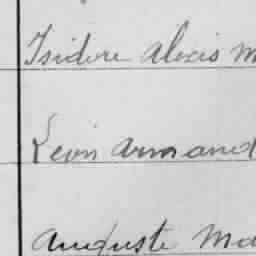 Isidore Alexis M
Léon Armand
Auguste Ma